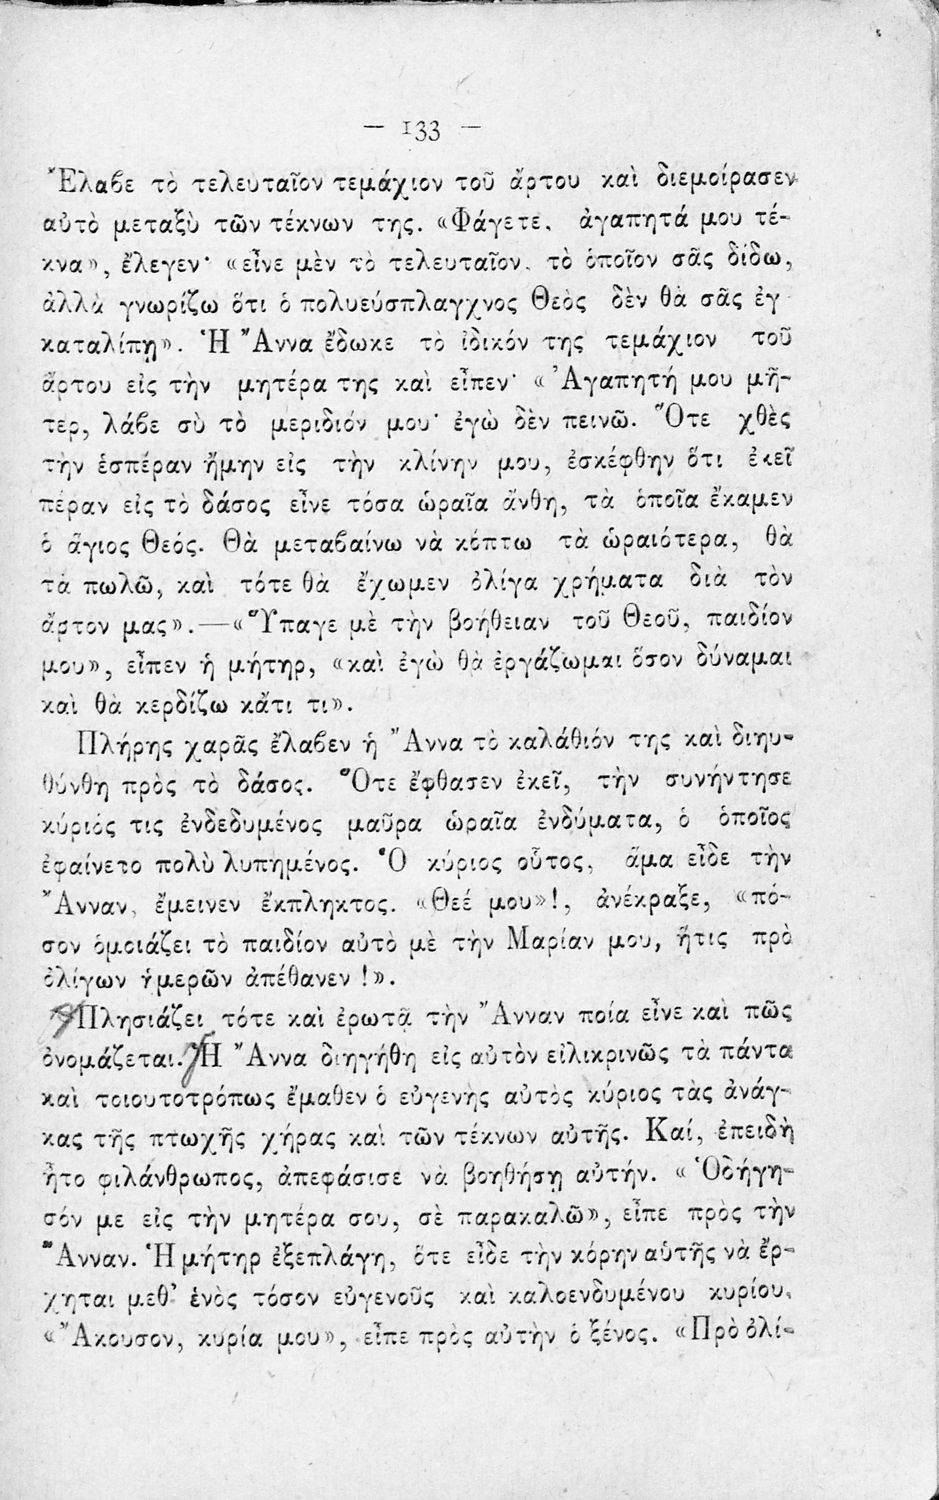 — 133 —
Ἔλαβε τὸ τελευταῖον τεμάχιον τοῦ ἄρτου καὶ διεμοίρασεν
αὐτὸ μεταξὺ τῶν τέκνων της. «Φάγετε, ἀγαπητά μου τέ-
κνα», ἔλεγεν· «εἶνε μὲν τὸ τελευταῖον, τὸ ὁποῖον σᾶς δίδω,
ἀλλὰ γνωρίζω ὅτι ὁ πολυεύσπλαγχνος Θεὸς δὲν θὰ σᾶς ἐγ
καταλίπῃ». Ἡ Ἄννα ἔδωκε τὸ ἰδικόν της τεμάχιον τοῦ
ἄρτου εἰς τὴν μητέρα της καὶ εἶπεν· «Ἀγαπητή μου μῆ-
τερ, λάβε σὺ τὸ μερίδιόν μου· ἐγὼ δὲν πεινῶ. Ὅτε χθὲς
τὴν ἑσπέραν ἤμην εἰς τὴν κλίνην μου, ἐσκέφθην ὅτι ἐκεῖ
πέραν εἰς τὸ δάσος εἶνε τόσα ὡραῖα ἄνθη, τὰ ὁποῖα ἔκαμεν
ὁ ἅγιος Θεός. Θὰ μεταβαίνω νὰ κόπτω τὰ ὡραιότερα, θὰ
τὰ πωλῶ, καὶ τότε θὰ ἔχωμεν ὀλίγα χρήματα διὰ τὸν
ἄρτον μας».—«Ὕπαγε μὲ τὴν βοήθειαν τοῦ Θεοῦ, παιδίον
μου», εἶπεν ἡ μήτηρ, «καὶ ἐγὼ θὰ ἐργάζωμαι ὅσον δύναμαι
καὶ θὰ κερδίζω κἄτι τι».
Πλήρης χαρᾶς ἔλαβεν ἡ Ἄννα τὸ καλάθιόν της καὶ διηυ-
θύνθη πρὸς τὸ δάσος. Ὅτε ἔφθασεν ἐκεῖ, τὴν συνήντησε
κύριός τις ἐνδεδυμένος μαῦρα ὡραῖα ἐνδύματα, ὁ ὁποῖος
ἐφαίνετο πολὺ λυπημένος. Ὁ κύριος οὗτος, ἅμα εἶδε τὴν
Ἄνναν, ἔμεινεν ἔκπληκτος. «Θεέ μου»!, ἀνέκραξε, «πό-
σον ὁμοιάζει τὸ παιδίον αὐτὸ μὲ τὴν Μαρίαν μου, ἥτις πρὸ
ὀλίγων ἡμερῶν ἀπέθανεν!».
Πλησιάζει τότε καὶ ἐρωτᾷ τὴν Ἄνναν ποία εἶνε καὶ πῶς
ὀνομάζεται. Ἡ Ἄννα διηγήθη εἰς αὐτὸν εἰλικρινῶς τὰ πάντα
καὶ τοιουτοτρόπως ἔμαθεν ὁ εὐγενὴς αὐτὸς κύριος τὰς ἀνάγ-
κας τῆς πτωχῆς χήρας καὶ τῶν τέκνων αὐτῆς. Καί, ἐπειδὴ
ἦτο φιλάνθρωπος, ἀπεφάσισε νὰ βοηθήσῃ αὐτήν. «Ὁδήγη-
σόν με εἰς τὴν μητέρα σου, σὲ παρακαλῶ», εἶπε πρὸς τὴν
Ἄνναν. Ἡ μήτηρ ἐξεπλάγη, ὅτε εἶδε τὴν κόρην αὑτῆς νὰ ἔρ-
χηται μεθ᾽ ἑνὸς τόσον εὐγενοῦς καὶ καλοενδυμένου κυρίου.
«Ἄκουσον, κυρία μου», εἶπε πρὸς αὐτὴν ὁ ξένος. «Πρὸ ὀλί-